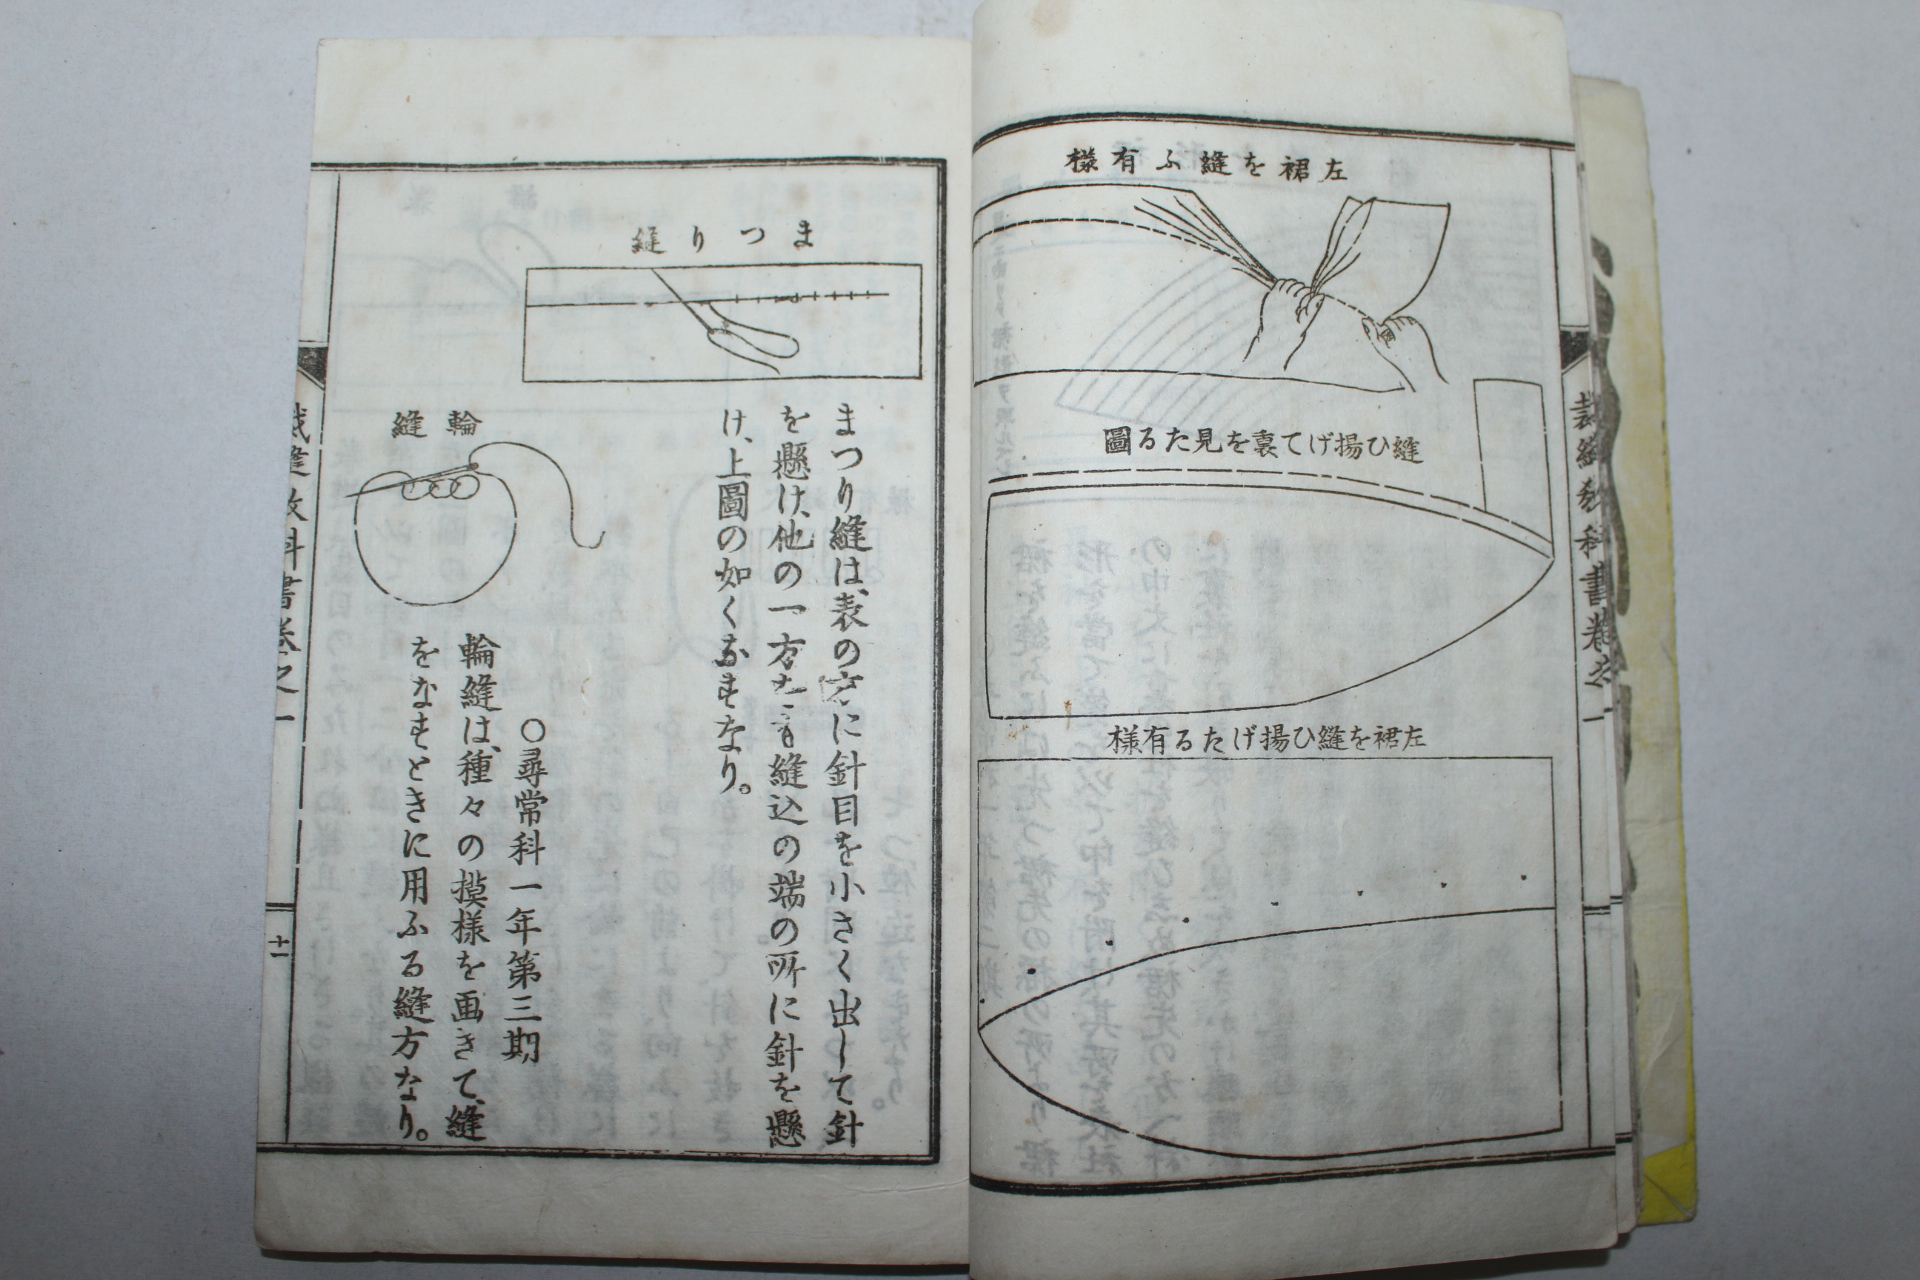 左裾を縫ふ有様
縫ひ揚げて裏を見たる圖
左裾を縫ひ揚げたる有様
裁縫教科書卷之一
まつり縫
まつり縫は、表の方に針目を小さく出して針
を懸け、他の一方
縫込の端の所に針を懸
け、上圖の如くなすなり。
輪縫
○尋常科一年第三期
輪縫は、種々の摸様を画きて、縫
をなすときに用ふる縫方なり。
裁縫教科書卷之一
十一